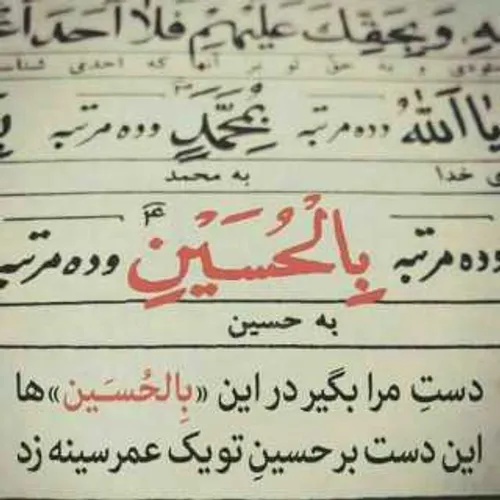 وَبِحَقِّكَ عَلَيْهِمْ فَلَا أَحَدَ
و به حق تو بر آنها که احدی
يَا اَللّٰهُ وده مرتبه بِمُحَمَّدٍ وده مرتبه
خدا به محمد
وده مرتبه بِالْحُسَيْنِ وده مرتبه
به حسین
دستِ مرا بگیر در این «بِالحُسَین»ها
این دست بر حسینِ تو یک عمر سینه زد